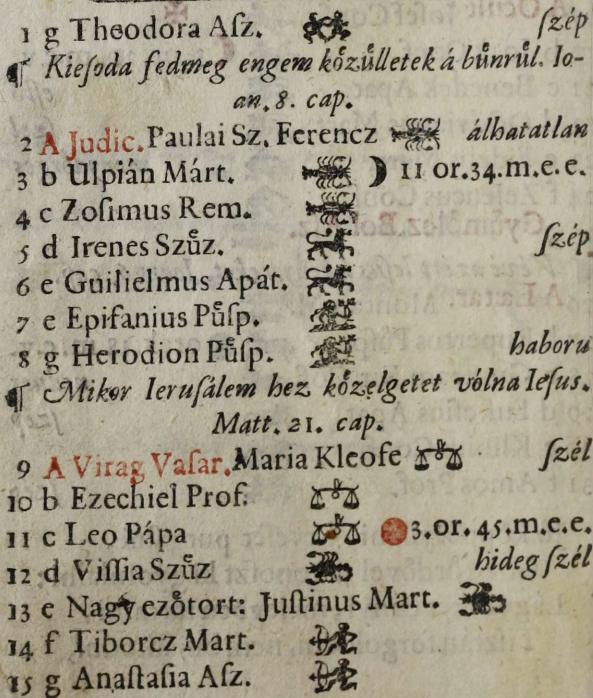 1 g Theodora Aſz. ſzép
¶ Kicſoda fedmeg engem kőzůlletek á bůnrůl. Io-
an. 8. cap.
2 A Judic. Paulai Sz. Ferencz álhatatlan
3 b Ulpián Márt. ☽ 11 or. 34. m. e. e.
4 c Zoſimus Rem.
5 d Irenes Szůz. ſzép
6 e Guilielmus Apát.
7 e Epifanius Půſp.
8 g Herodion Půſp. haboru
¶ Mikor Ieruſálem hez kőzelgetet vólna Ieſus.
Matt. 21. cap.
9 A Virag Vaſar. Maria Kleofe ſzél
10 b Ezechiel Prof.
11 c Leo Pápa 3. or. 45. m. e. e.
12 d Viſſia Szůz hideg ſzél
13 e Nagy ezőtort: Juſtinus Mart.
14 f Tiborcz Mart.
15 g Anaſtaſia Aſz.